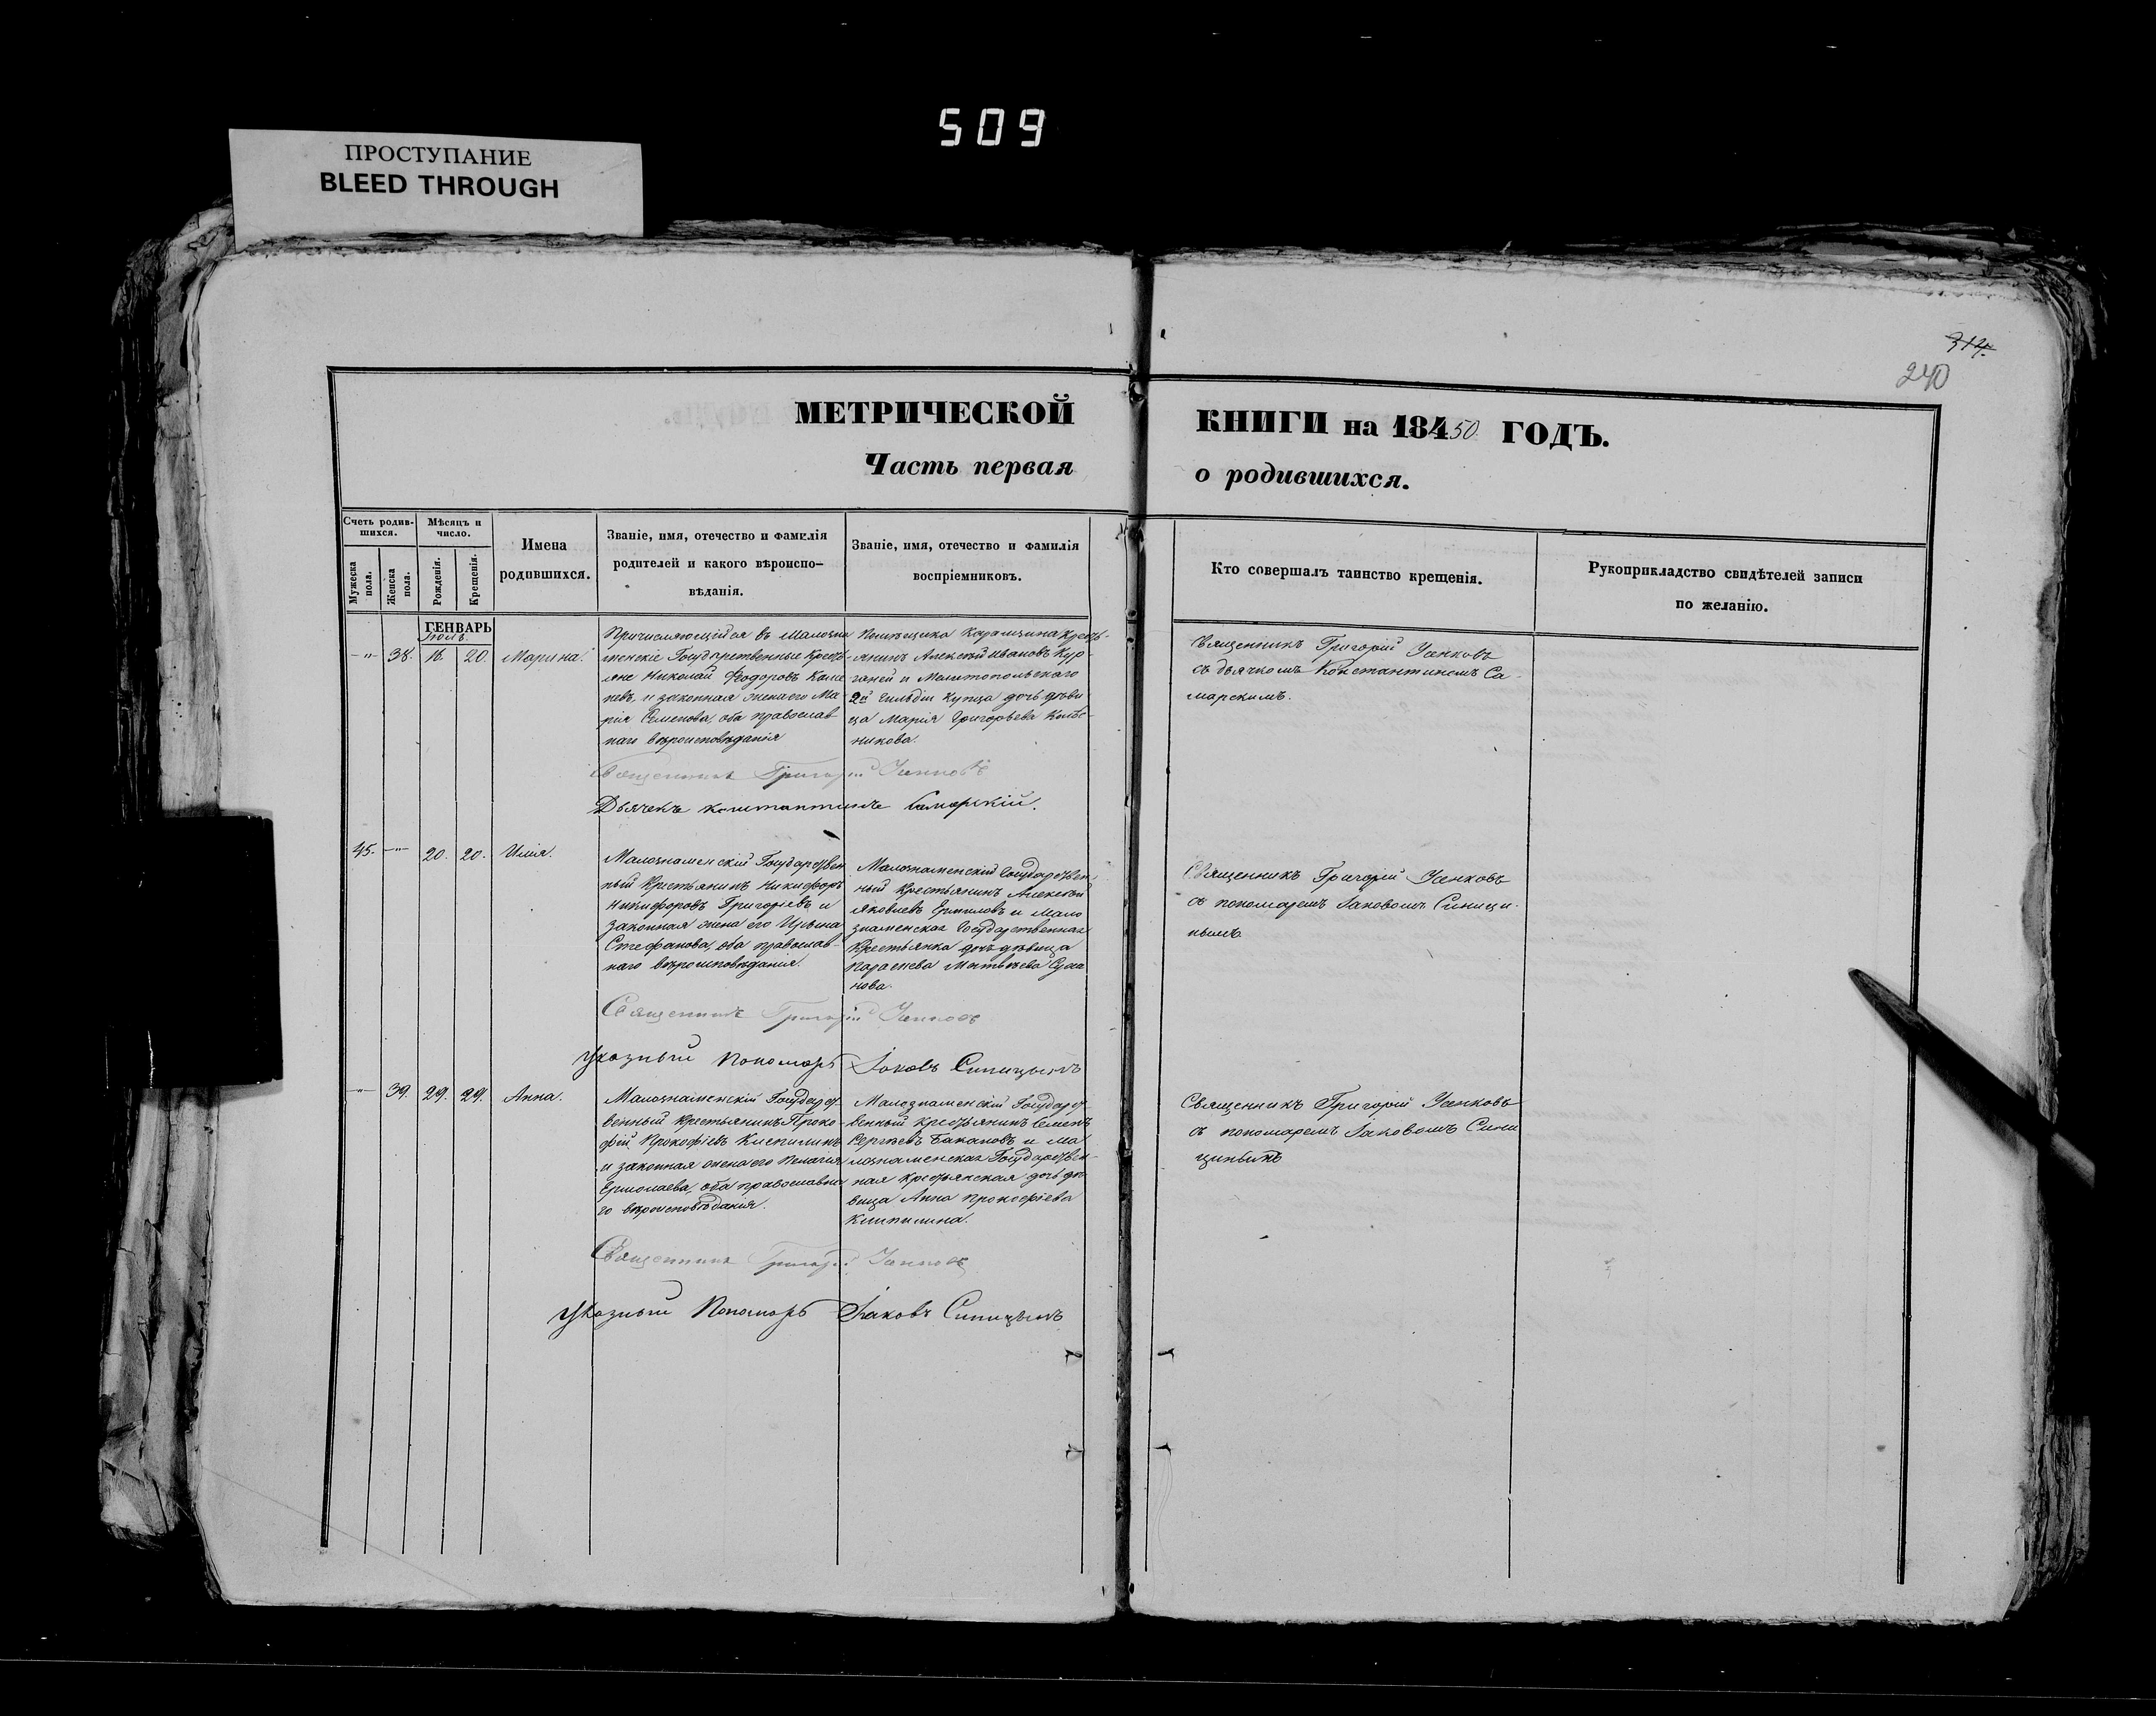 509
ПРОСТУПАНИЕ
BLEED THROUGH
314.
240
МЕТРИЧЕСКОЙ КНИГИ на 18450 ГОДЪ.
Часть первая о родившихся.
Счетъ родившихся.
Мужеска пола.
Женска пола.
Мѣсяцъ и число.
Рожденія.
Крещенія.
Имена родившихся.
Званіе, имя, отечество и фамилія
родителей и какого вѣроиспо-
вѣданія.
Званіе, имя, отечество и фамилія
воспріемниковъ.
Кто совершалъ таинство крещенія.
Рукоприкладство свидѣтелей записи
по желанію.
ГЕНВАРЬ
Іюль.
38. 16. 20. Марина.
Причисляющійся въ Малозна
менскіе Государственные Кресть-
яне Николай Феодоровъ
и законная жена его Ма
рія Семенова, оба православ
наго вѣроисповѣданія
Помѣщика Карамзина Кресть-
янинъ Алексѣй Ивановъ Кур-
ганей и Мелитопольскаго
2й гильдіи Купца дочь дѣви
ца Марія Григорьева
никова.
Священникъ Григорій Уенковъ
съ дьячкомъ Константиномъ Са-
марскимъ.
Священникъ Григорій Уенковъ
Дьячекъ Константинъ Самарскій.
45. 20. 20. Илія.
Малознаменскій Государствен
ный Крестьянинъ Никифоръ
Никифоровъ Григоріевъ и
законная жена его Ирина
Стефанова, оба православ-
наго вѣроисповѣданія.
Малознаменскій Государствен-
ный Крестьянинъ Алексѣй
Яковлевъ Ермиловъ и Мало
знаменская Государственная
Крестьянка дочь дѣвица
Параскева Матвѣева
нова.
Священникъ Григорій Уенковъ
съ пономаремъ Іаковомъ Синици-
нымъ
Священникъ Григорій Уенковъ
Указный Пономарь Іаковъ Синицынъ
39. 29. 29. Анна.
Малознаменскій Государст
венный Крестьянинъ Проко-
фій Прокофіевъ Клепилинъ
и законная жена его Пелагія
Ермолаева, оба православна
го вѣроисповѣданія.
Малознаменскій Государст
венный Крестьянинъ Семенъ
Сергѣевъ Бакановъ и Ма
лознаменская Государствен-
ная крестьянская дочь дѣ
вица Анна Прокофіева
Клепилина.
Священникъ Григорій Уенковъ
съ пономаремъ Іаковомъ Сини
цинымъ
Священникъ Григорій Уенковъ
Указный Пономарь Іаковъ Синицынъ